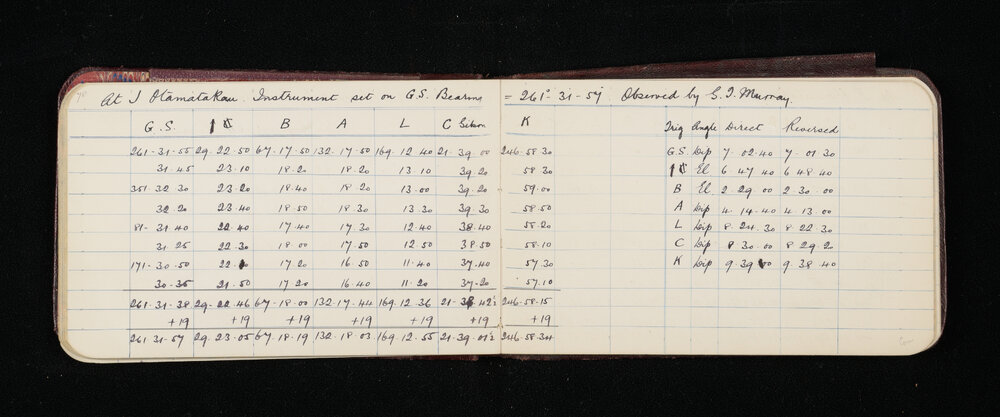 At J Otamatakau. Instrument set on G.S. Bearing = 261°-31-57 Observed by G.T. Murray.
G.S. B A L C Sikon K
Trig Angle Direct Reversed
261-31-55 29-22-50 67-17-50 132-17-50 169-12-40 21-39-00 246-58-30
31-45 23-10 18-20 18-20 13-10 39-20 58-30
351-32-30 23-20 18-40 18-20 13-00 39-20 59-00
32-20 23-40 18-50 18-30 13-30 39-30 58-50
81-31-40 22-40 17-40 17-30 12-40 38-40 58-20
31-25 22-30 18-00 17-50 12-50 38-50 58-10
171-30-50 17-20 16-50 11-40 37-40 57-30
30-35 21-50 17-20 16-40 11-20 37-20 57-10
261-31-38 29-22-46 67-18-00 132-17-44 169-12-36 21-38-42½ 246-58-15
+19 +19 +19 +19 +19 +19 +19
261-31-57 29-23-05 67-18-19 132-18-03 169-12-55 21-39-01½ 246-58-34
G.S Dip 7-02-40 7-01-30
El 6-47-40 6-48-40
B El 2-29-00 2-30-00
A Dip 4-14-40 4-13-00
L Dip 8-24-30 8-22-30
C Dip 8-30-00 8-29-20
K Dip 9-39-00 9-38-40